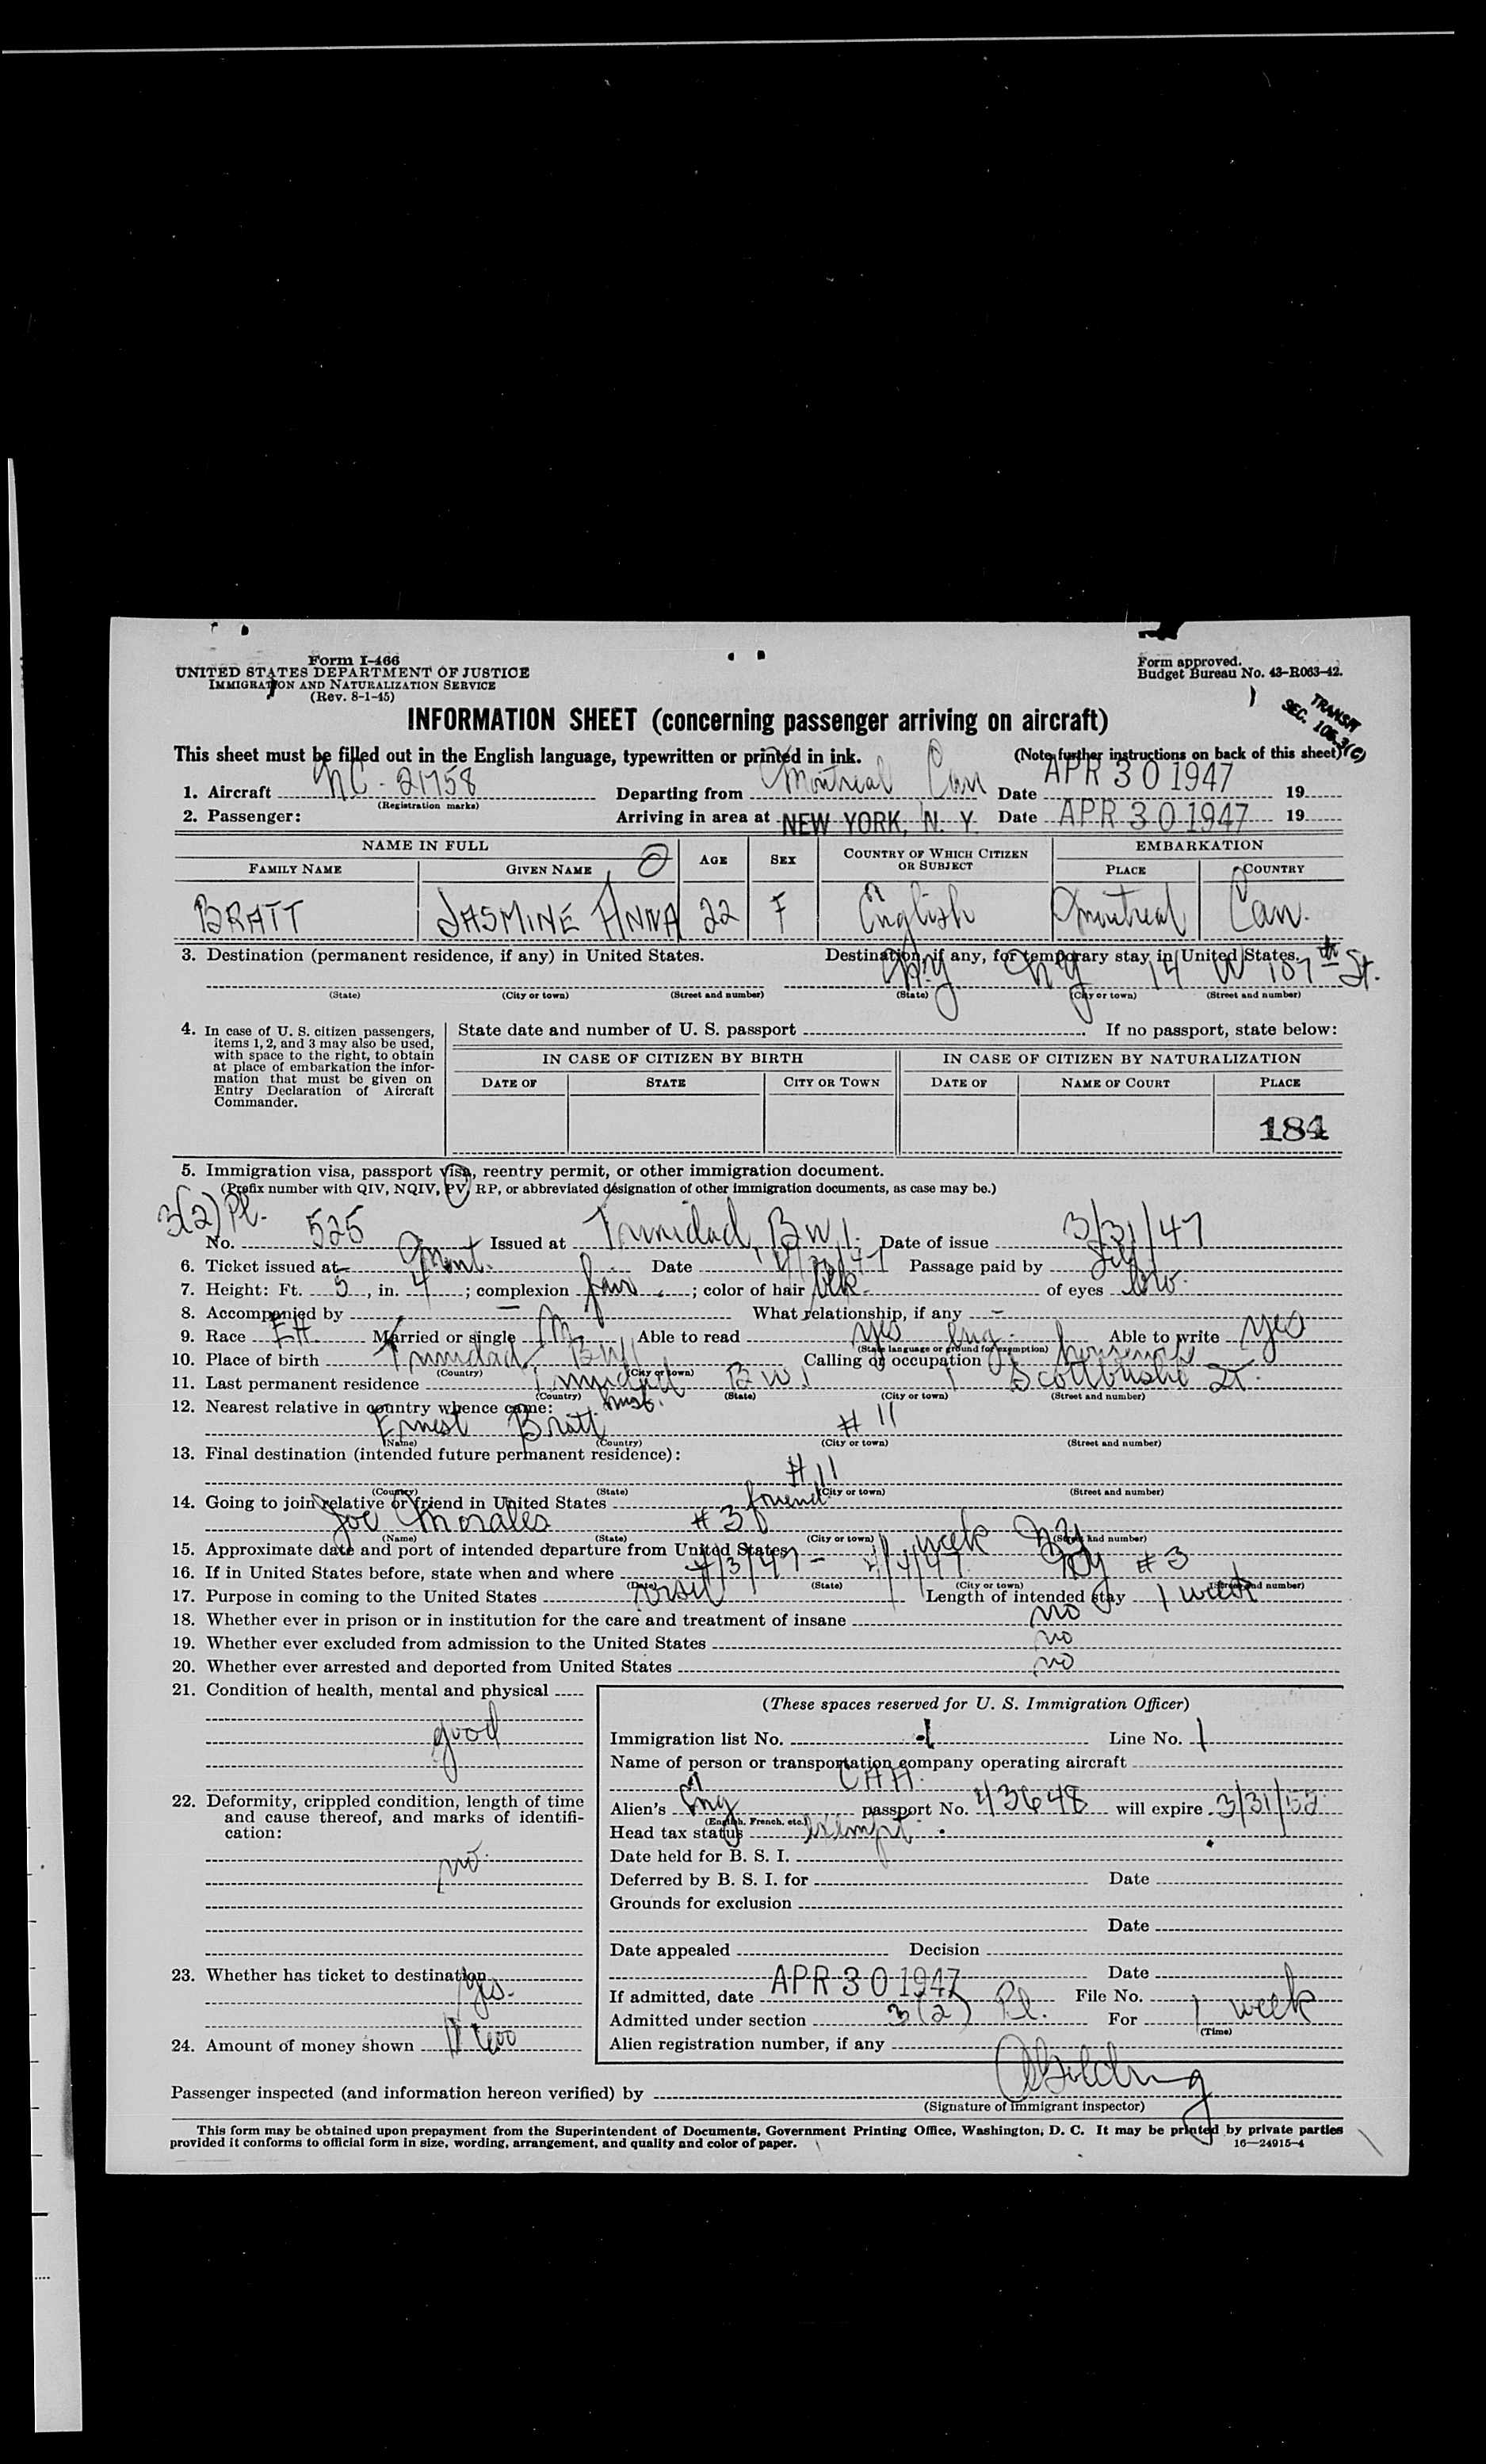 Form I-466
UNITED STATES DEPARTMENT OF JUSTICE
IMMIGRATION AND NATURALIZATION SERVICE
(Rev. 8-1-45)
Form approved.
Budget Bureau No. 43-R063-42.
TRANSIT
SEC. 105.3(C)
INFORMATION SHEET (concerning passenger arriving on aircraft)
This sheet must be filled out in the English language, typewritten or printed in ink. (Note further instructions on back of this sheet)
1. Aircraft NC-21758 Departing from Montreal Can Date APR 30 1947 19
(Registration marks)
2. Passenger: Arriving in area at NEW YORK, N. Y. Date APR 30 1947 19
NAME IN FULL AGE SEX COUNTRY OF WHICH CITIZEN OR SUBJECT EMBARKATION
FAMILY NAME GIVEN NAME PLACE COUNTRY
BRATT JASMINE ANNA 22 F English Montreal Can.
3. Destination (permanent residence, if any) in United States. Destination, if any, for temporary stay in United States.
NY NY 14 W 107th St.
(State) (City or town) (Street and number) (State) (City or town) (Street and number)
4. In case of U. S. citizen passengers, items 1, 2, and 3 may also be used, with space to the right, to obtain at place of embarkation the information that must be given on Entry Declaration of Aircraft Commander.
State date and number of U. S. passport If no passport, state below:
IN CASE OF CITIZEN BY BIRTH IN CASE OF CITIZEN BY NATURALIZATION
DATE OF STATE CITY OR TOWN DATE OF NAME OF COURT PLACE
184
5. Immigration visa, passport visa, reentry permit, or other immigration document.
(Prefix number with QIV, NQIV, PV, RP, or abbreviated designation of other immigration documents, as case may be.)
3(2) Pl.
No. 525 Issued at Trinidad, BWI. Date of issue 3/31/47
6. Ticket issued at Mont. Date Passage paid by Self
7. Height: Ft. 5, in. 4; complexion fair; color of hair blk of eyes br.
8. Accompanied by What relationship, if any –
9. Race Married or single M Able to read yes Eng. Able to write yes
(State language or ground for exemption)
10. Place of birth Trinidad BWI Calling or occupation housewife
(Country) (City or town)
11. Last permanent residence Trinidad BWI
(Country) (State) (City or town) (Street and number)
12. Nearest relative in country whence came: husb.
Ernest Bratt # 11
(Name) (Country) (City or town) (Street and number)
13. Final destination (intended future permanent residence):
# 11
(Country) (State) (City or town) (Street and number)
14. Going to join relative or friend in United States friend
Joe Morales # 3
(Name) (State) (City or town) (Street and number)
15. Approximate date and port of intended departure from United States 1 week NY
16. If in United States before, state when and where 4/3/47 - 4/4/47 NY # 3
(Date) (State) (City or town) (Street and number)
17. Purpose in coming to the United States visit Length of intended stay 1 week
18. Whether ever in prison or in institution for the care and treatment of insane no
19. Whether ever excluded from admission to the United States no
20. Whether ever arrested and deported from United States no
21. Condition of health, mental and physical
good
22. Deformity, crippled condition, length of time and cause thereof, and marks of identification:
no.
23. Whether has ticket to destination
yes.
24. Amount of money shown
(These spaces reserved for U. S. Immigration Officer)
Immigration list No. 1 Line No. 1
Name of person or transportation company operating aircraft
Alien's Eng passport No. 43648 will expire 3/31/52
(English, French, etc.)
Head tax status exempt.
Date held for B. S. I.
Deferred by B. S. I. for Date
Grounds for exclusion
Date
Date appealed Decision
Date
If admitted, date APR 30 1947 File No.
Admitted under section 3(2) Pl. For 1 week
(Time)
Alien registration number, if any
Passenger inspected (and information hereon verified) by
(Signature of immigrant inspector)
This form may be obtained upon prepayment from the Superintendent of Documents, Government Printing Office, Washington, D. C. It may be printed by private parties
provided it conforms to official form in size, wording, arrangement, and quality and color of paper. 16—24915-4